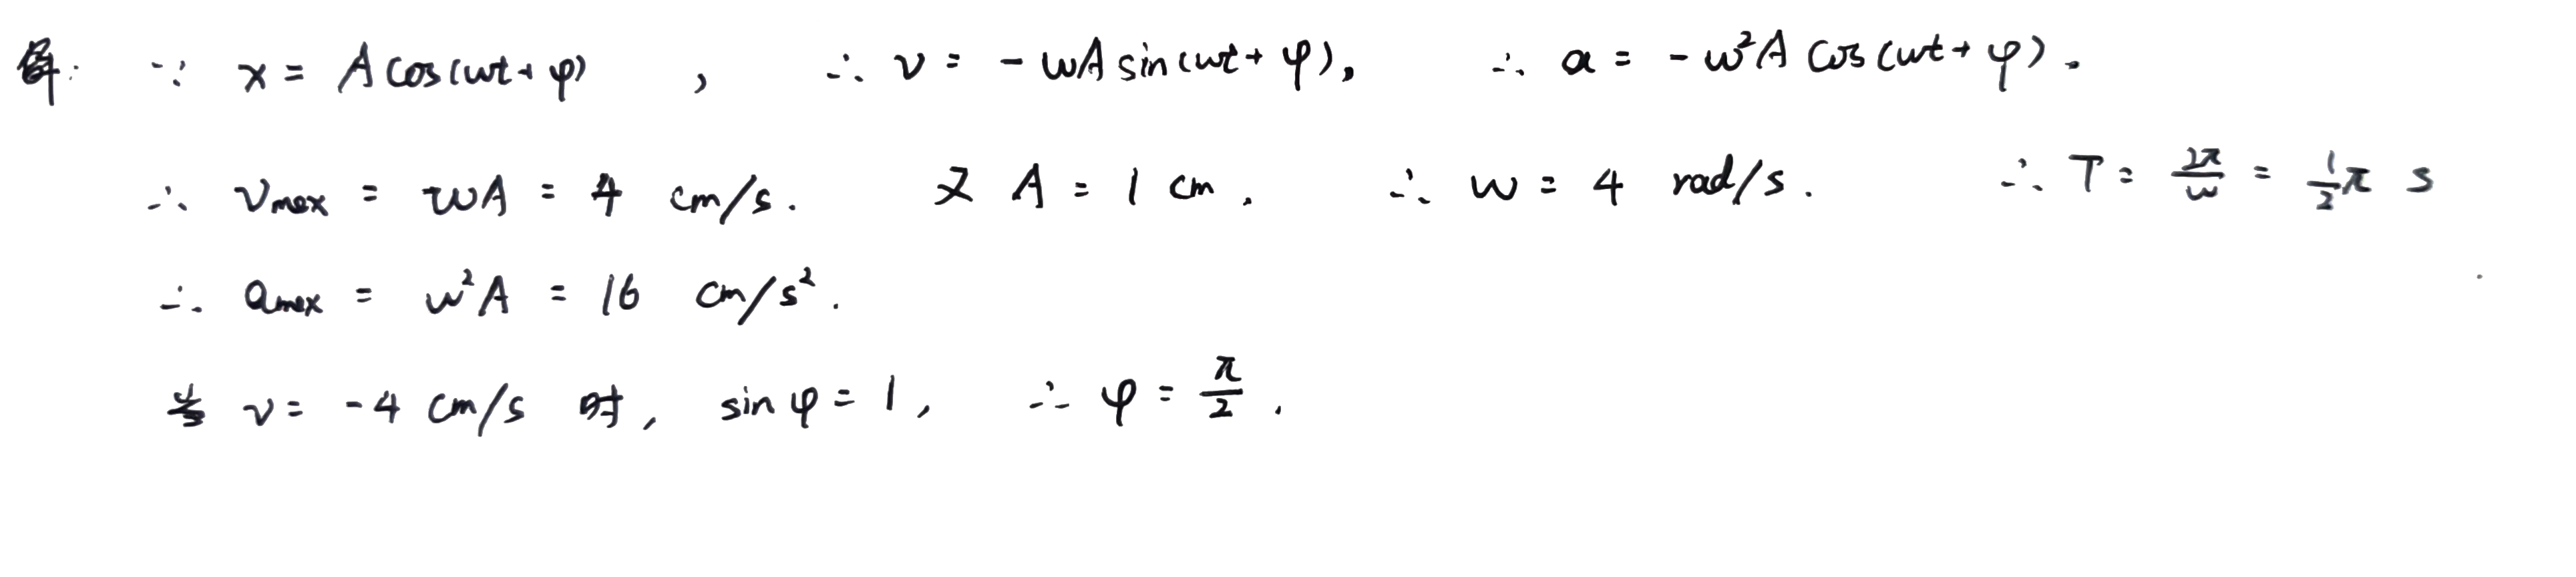 解: ∵ x = A cos(ωt+φ) , ∴ v = -ωA sin(ωt+φ), ∴ a = -ω²A cos(ωt+φ).
∴ vmax = ωA = 4 cm/s. 又 A = 1 cm. ∴ ω = 4 rad/s. ∴ T = 2π/ω = 1/2 π s
∴ amax = ω²A = 16 cm/s².
当 v = -4 cm/s 时, sin φ = 1, ∴ φ = π/2.